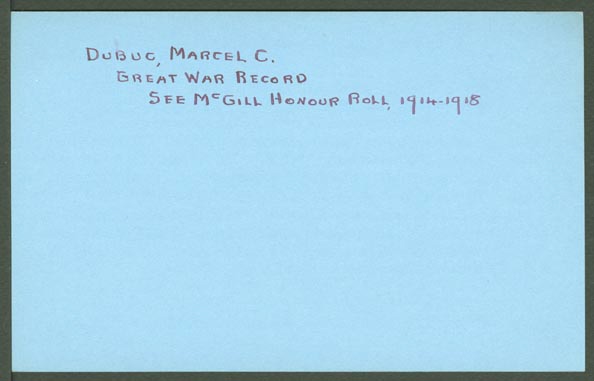 DUBUC, MARCEL C.
GREAT WAR RECORD
SEE McGILL HONOUR ROLL, 1914-1918